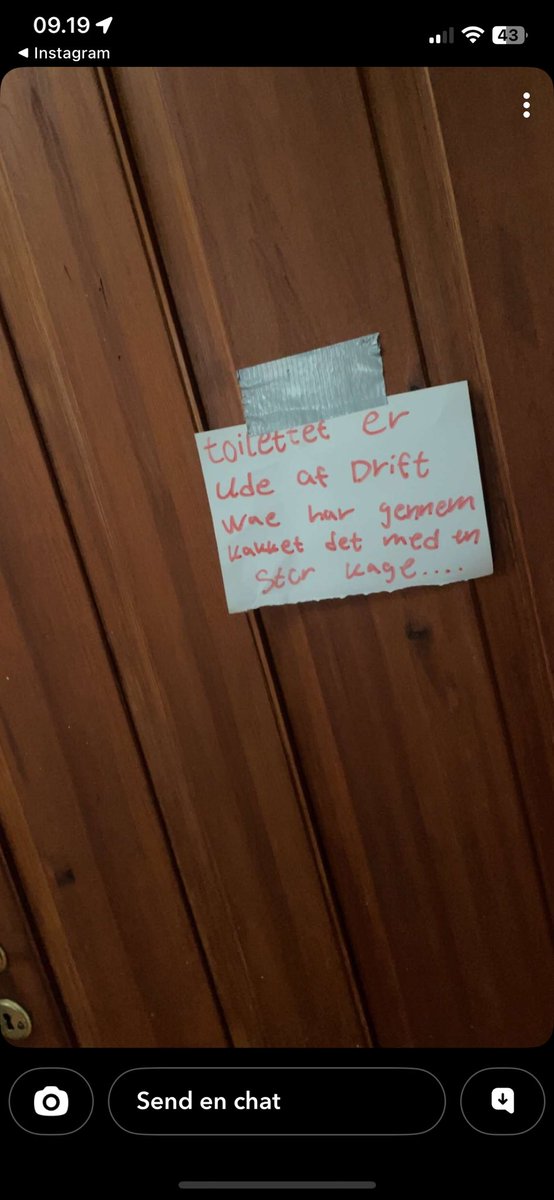 09.19
43
Instagram
toilettet er
Ude af Drift
Wae har gennem
kakket det med en
Stor kage....
Send en chat